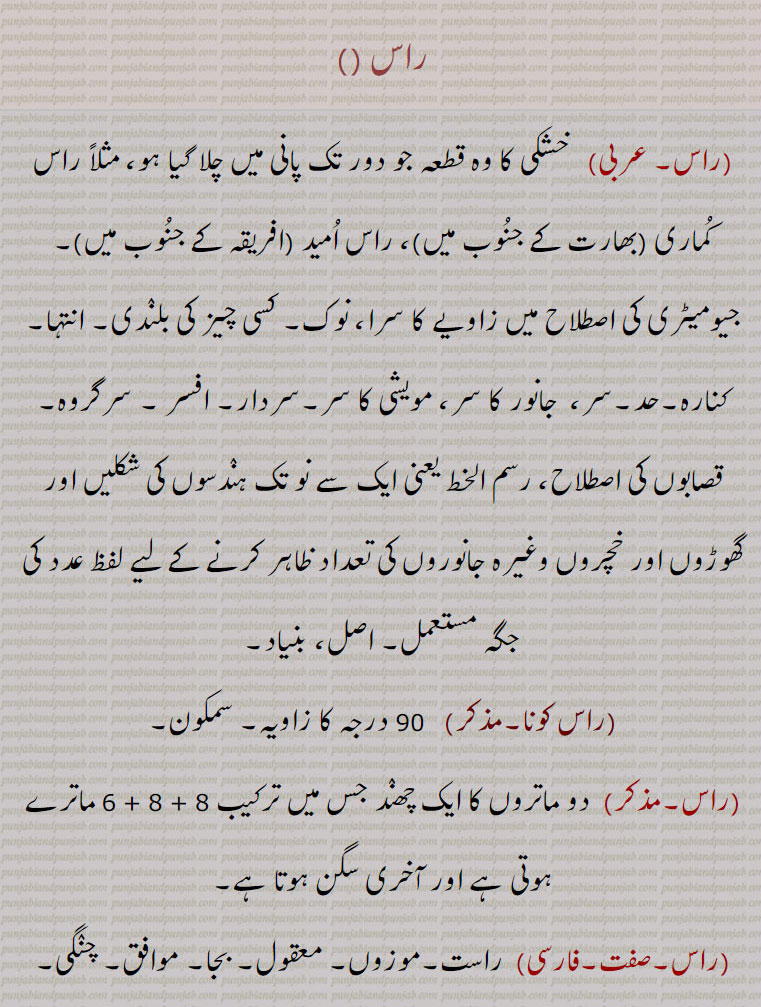 راس ()
(راس۔ عربی) خشکی کا وہ قطعہ جو دور تک پانی میں چلا گیا ہو، مثلاً راس
کُماری (بھارت کے جنُوب میں)، راس اُمید (افریقہ کے جنُوب میں)۔
جیومیٹری کی اصطلاح میں زاویے کا سرا، نوک۔ کسی چیز کی بلنْدی۔ انتہا۔
کنارہ۔حد۔سر، جانور کا سر، مویشی کا سر۔سردار۔ افسر ۔ سرگروہ۔
قصابوں کی اصطلاح، رسم الخط یعنی ایک سے نو تک ہنْدسوں کی شکلیں اور
گھوڑوں اور خچروں وغیرہ جانوروں کی تعداد ظاہر کرنے کے لیے لفظ عدد کی
جگہ مستعمل۔ اصل، بنیاد۔
(راس کونا۔مذکر) 90 درجہ کا زاویہ۔ سمکون۔
(راس۔مذکر) دو ماتروں کا ایک چھنْد جس میں ترکیب 8 + 8 + 6 ماترے
ہوتی ہے اور آخری سگن ہوتا ہے۔
(راس۔صفت۔فارسی) راست۔موزوں۔ معقول۔ بجا۔ موافق۔ چنْگی۔